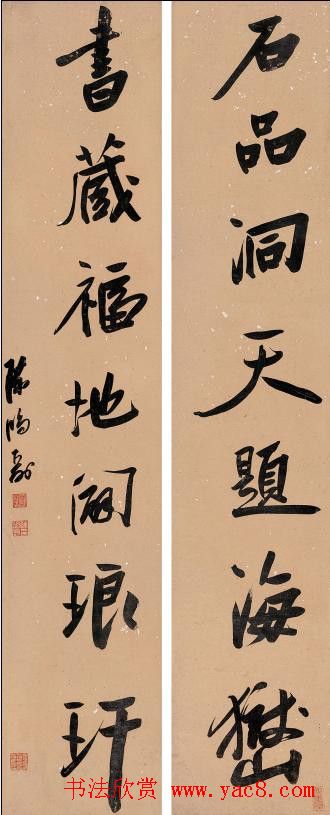 石品洞天題海嶽
書藏福地闢琅玕
陳鴻壽
书法欣赏 www.yac8.com